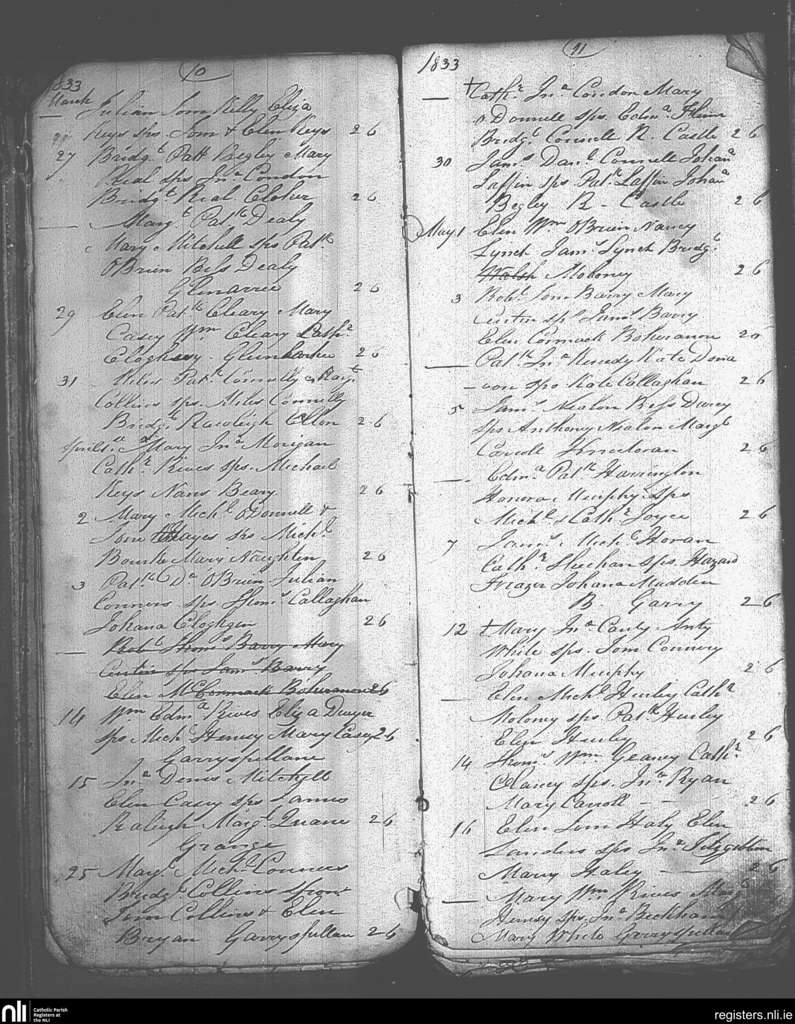 10
1833
March
Julian Tom Kelly Eliza
Keys sps Tom & Elen Keys 2 6
27 Bridgt Patk Begley Mary
Rial sps Jna Condon
Bridgt Rial Cloher 2 6
— Margt Patk Dealy
Mary Mitchell sps Patk
OBrien Bess Dealy
Glenarree 2 6
29 Elen Patk Cleary Mary
Casey Wm Cleary Cathr
Cloghesy Glenbanker 2 6
31 Miles Patk Connolly Margt
Collins sps Miles Connolly
Bridgt Rawleigh Ellon 2 6
Mary Jna Morigan
Cathr Rives sps Michael
Keys Nans Beary 2 6
2 Mary Michl ODonnell &
Tom Hayes sps Michl
Bourke Mary Naughten 2 6
3 Patk Da OBrien Julian
Conners sps Thoms Callaghan
Johana Cloghgen 2 6
— Robt Thoms Barry Mary
Curtin sps Jams Barry
Elen McCormack Boheranon 2 6
14 Wm Edma Rives Eliza Dwyer
sps Mich Hensy Mary Casey 2 6
Garryspellane
15 Jna Denis Mitchell
Elen Casey sps James
Raleigh Margt Quane 2 6
Grange
25 Margt Michl Conners
Bridgt Collins spons
Tom Collins & Elen
Bryan Garryspellan 2 6
11
1833
— †Cathr Jna Condon Mary
oDonnell sps Edma Hunn
Bridgt Connell R Castle 2 6
30 Jams Danl Connell Johana
Laffin sps Patk Laffin Johana
Begley R - Castle 2 6
May 1 Elen Wm OBrien Nancy
Lynch Jams Lynch Bridgt
Walsh Moloney 2 6
3 Robt Tom Barry Mary
Curtin sps Jams Barry
Elen Cormack Boheranon 2 6
— Patk Jna Kenedy Kate Dono
-von sps Kate Callaghan 2 6
5 Jams Nealon Bess Darcy
sps Anthony Nealon Margt
Carroll Knockoran 2 6
— Edma Patk Harrington
Honora Murphy sps
Michl & Cathr Joyce 2 6
7 Jams Michl Horan
Cathr Sheehan sps Hazard
Frazer Johana Madden
B. Garry 2 6
12 †Mary Jna Canty Anty
White sps Tom Connery
Johana Murphy 2 6
— Elen Michl Hurley Cathr
Molony sps Patk Hurley
Elen Hurley 2 6
14 Thoms Wm Geaney Cathr
Clancy sps Jna Ryan
Mary Carroll - - 2 6
16 Elen Tom Haly Elen
Landers sps Jna Fitzgibbon
Mary Haley — 2 6
— Mary Wm Rives Margt
Hensy sps Jna Beckham
Mary White Garryspellan
nli
Catholic Parish
Registers at
the NLI
registers.nli.ie